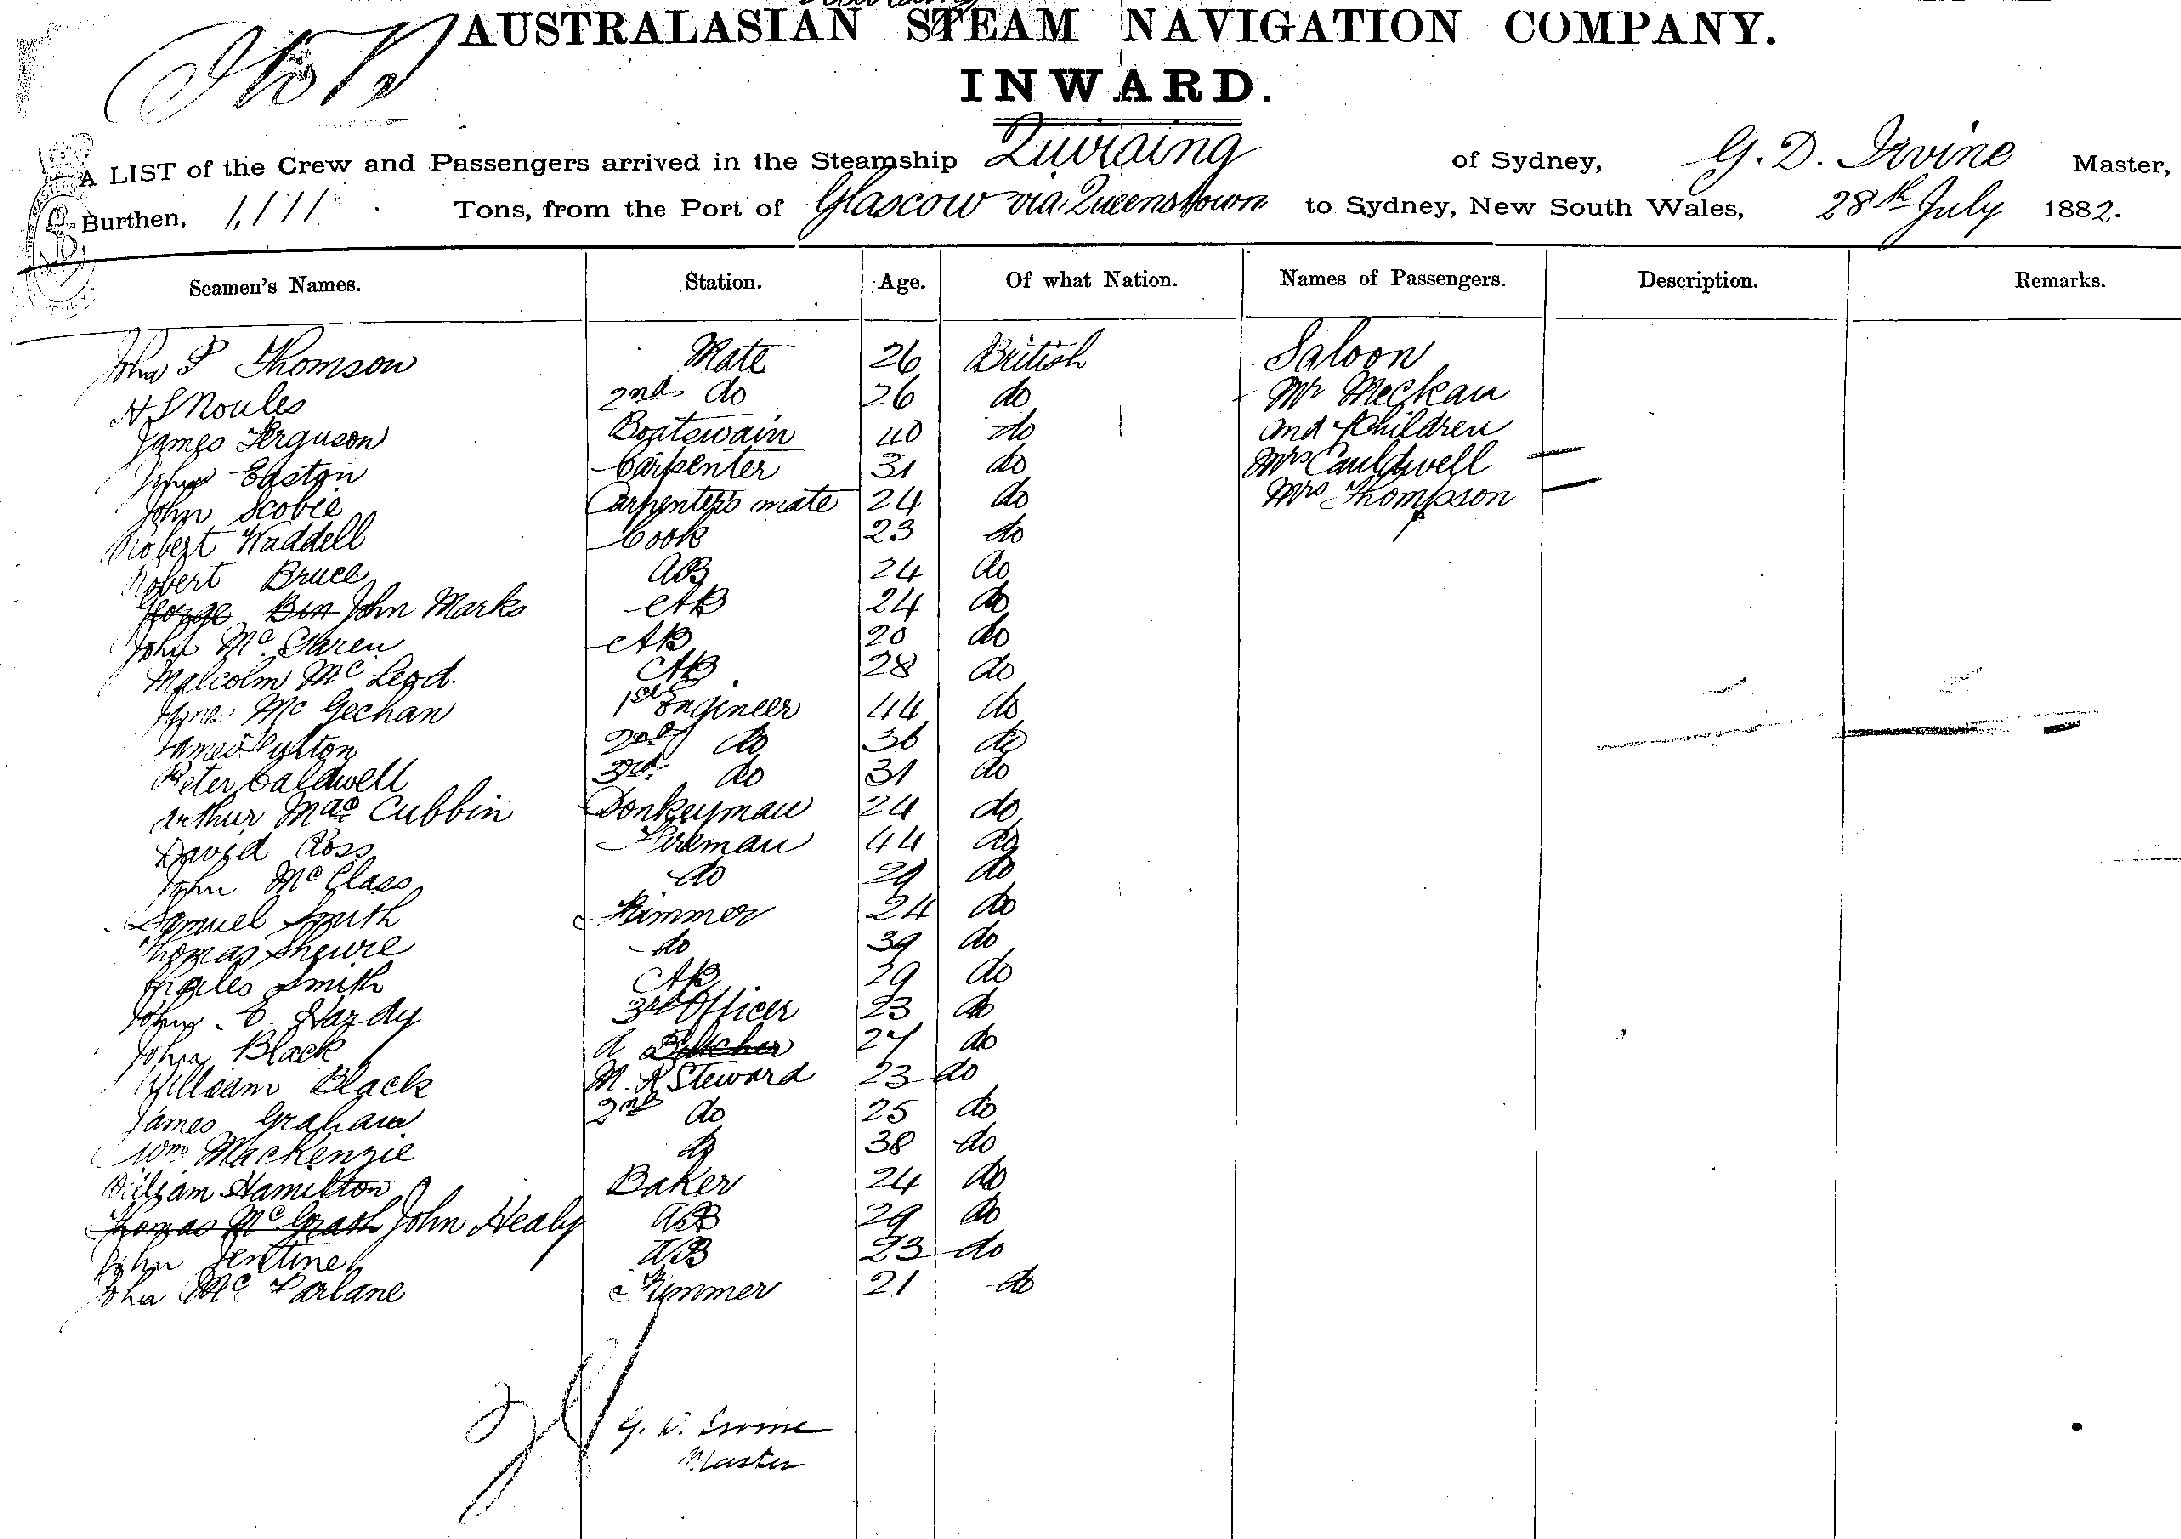 AUSTRALASIAN STEAM NAVIGATION COMPANY.
INWARD.
A LIST of the Crew and Passengers arrived in the Steamship Quiraing of Sydney, G. D. Irvine Master,
Burthen, 1,111 Tons, from the Port of Glascow via Queenstown to Sydney, New South Wales, 28th July 1882.
Seamen's Names. Station. Age. Of what Nation. Names of Passengers. Description. Remarks.
John P Thomson Mate 26 British Saloon
H S Moules 2nd do 26 do Mr Meckan
James Ferguson Boatswain 40 do and Children
John Easton Carpenter 31 do Mrs Cauldwell
John Scobie Carpenter's mate 24 do Mrs Thompson
Robert Waddell Cook 23 do
Robert Bruce AB 24 do
George Ben John Marks AB 24 do
John Mc Claren AB 20 do
Malcolm Mc Leod AB 28 do
Mc Gechan 1st Engineer 44 do
James Hylton 2nd do 36 do
Peter Caldwell 3rd do 31 do
Arthur Mac Cubbin Donkeyman 24 do
David Ross Fireman 44 do
John Mc Glass do 29 do
Samuel Smith Trimmer 24 do
Thomas do 39 do
Smith AB 29 do
John C. Hardy 3rd Officer 23 do
John Black Butcher 27 do
William Black M. R Steward 23 do
James Graham 2nd do 25 do
Wm Mackenzie do 38 do
William Hamilton Baker 24 do
Thomas Mc Grath John Healy AB 29 do
John Jentine AB 23 do
John Mc Farlane Trimmer 21 do
G. D. Irvine
Master